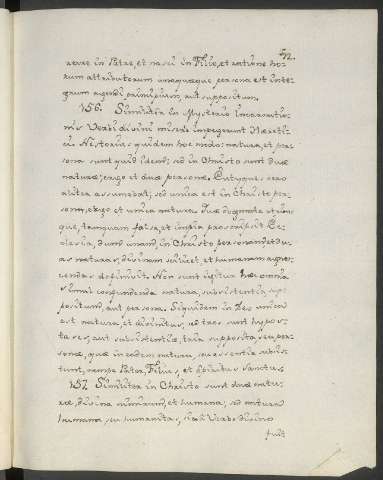 52.
rare in Patre, et nasci in Filio, et ratione ho-
rum attributorum unaquæque persona est inte-
grum agendi principium, aut suppositum.
156. Similiter in Mysterio Incarnatio-
nis Verbi divini misere impegerunt Hæreti-
ci. Nestorius quidem hoc modo: natura, et per-
sona sunt quid idem; sed in Christo sunt duæ
naturæ; ergo et duæ personæ. Eutyques vero
aliter assumebat; sed unica est in Christo per-
sona, ergo et unica natura. Quæ dogmata utrum-
que, tamquam falsa, et impia proscripsit Ec-
clesia, dum unam in Christo personam et du-
as naturas, divinam scilicet, et humanam agnos-
cendas definivit. Non sunt igitur hæc omnia
simul confundenda natura, subsistentia, sup-
positum, aut persona. Siquidem in Deo unica
est natura, et divinitas, ad tres sunt hypos-
tases, aut subsistentiæ, tria supposita, seu per-
sonæ, quæ in eadem natura, ac essentia subsis-
tunt, nempe Pater, Filius, et Spiritus Sanctus.
157. Similiter in Christo sunt duæ natu-
ræ, divina nimirum, et humana; sed natura
humana, seu humanitas, Verbo divino
fuit